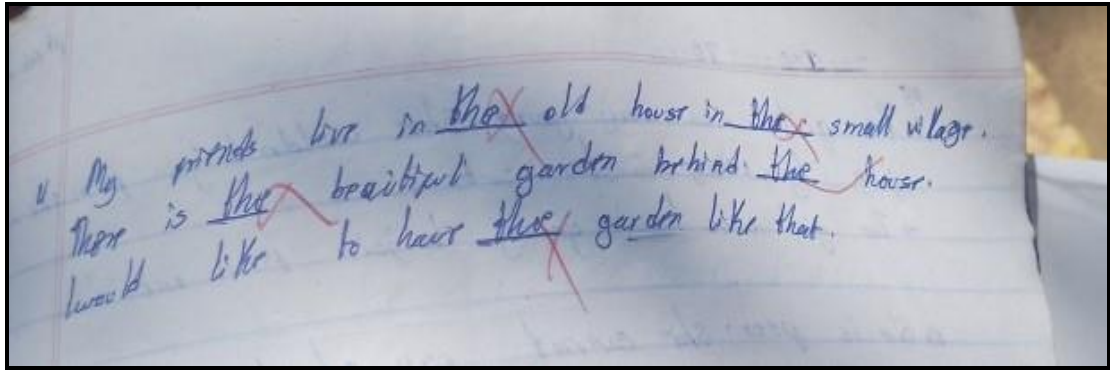 My friends live in the old house in the small village.
There is the beautiful garden behind the house.
I would like to have the garden like that.